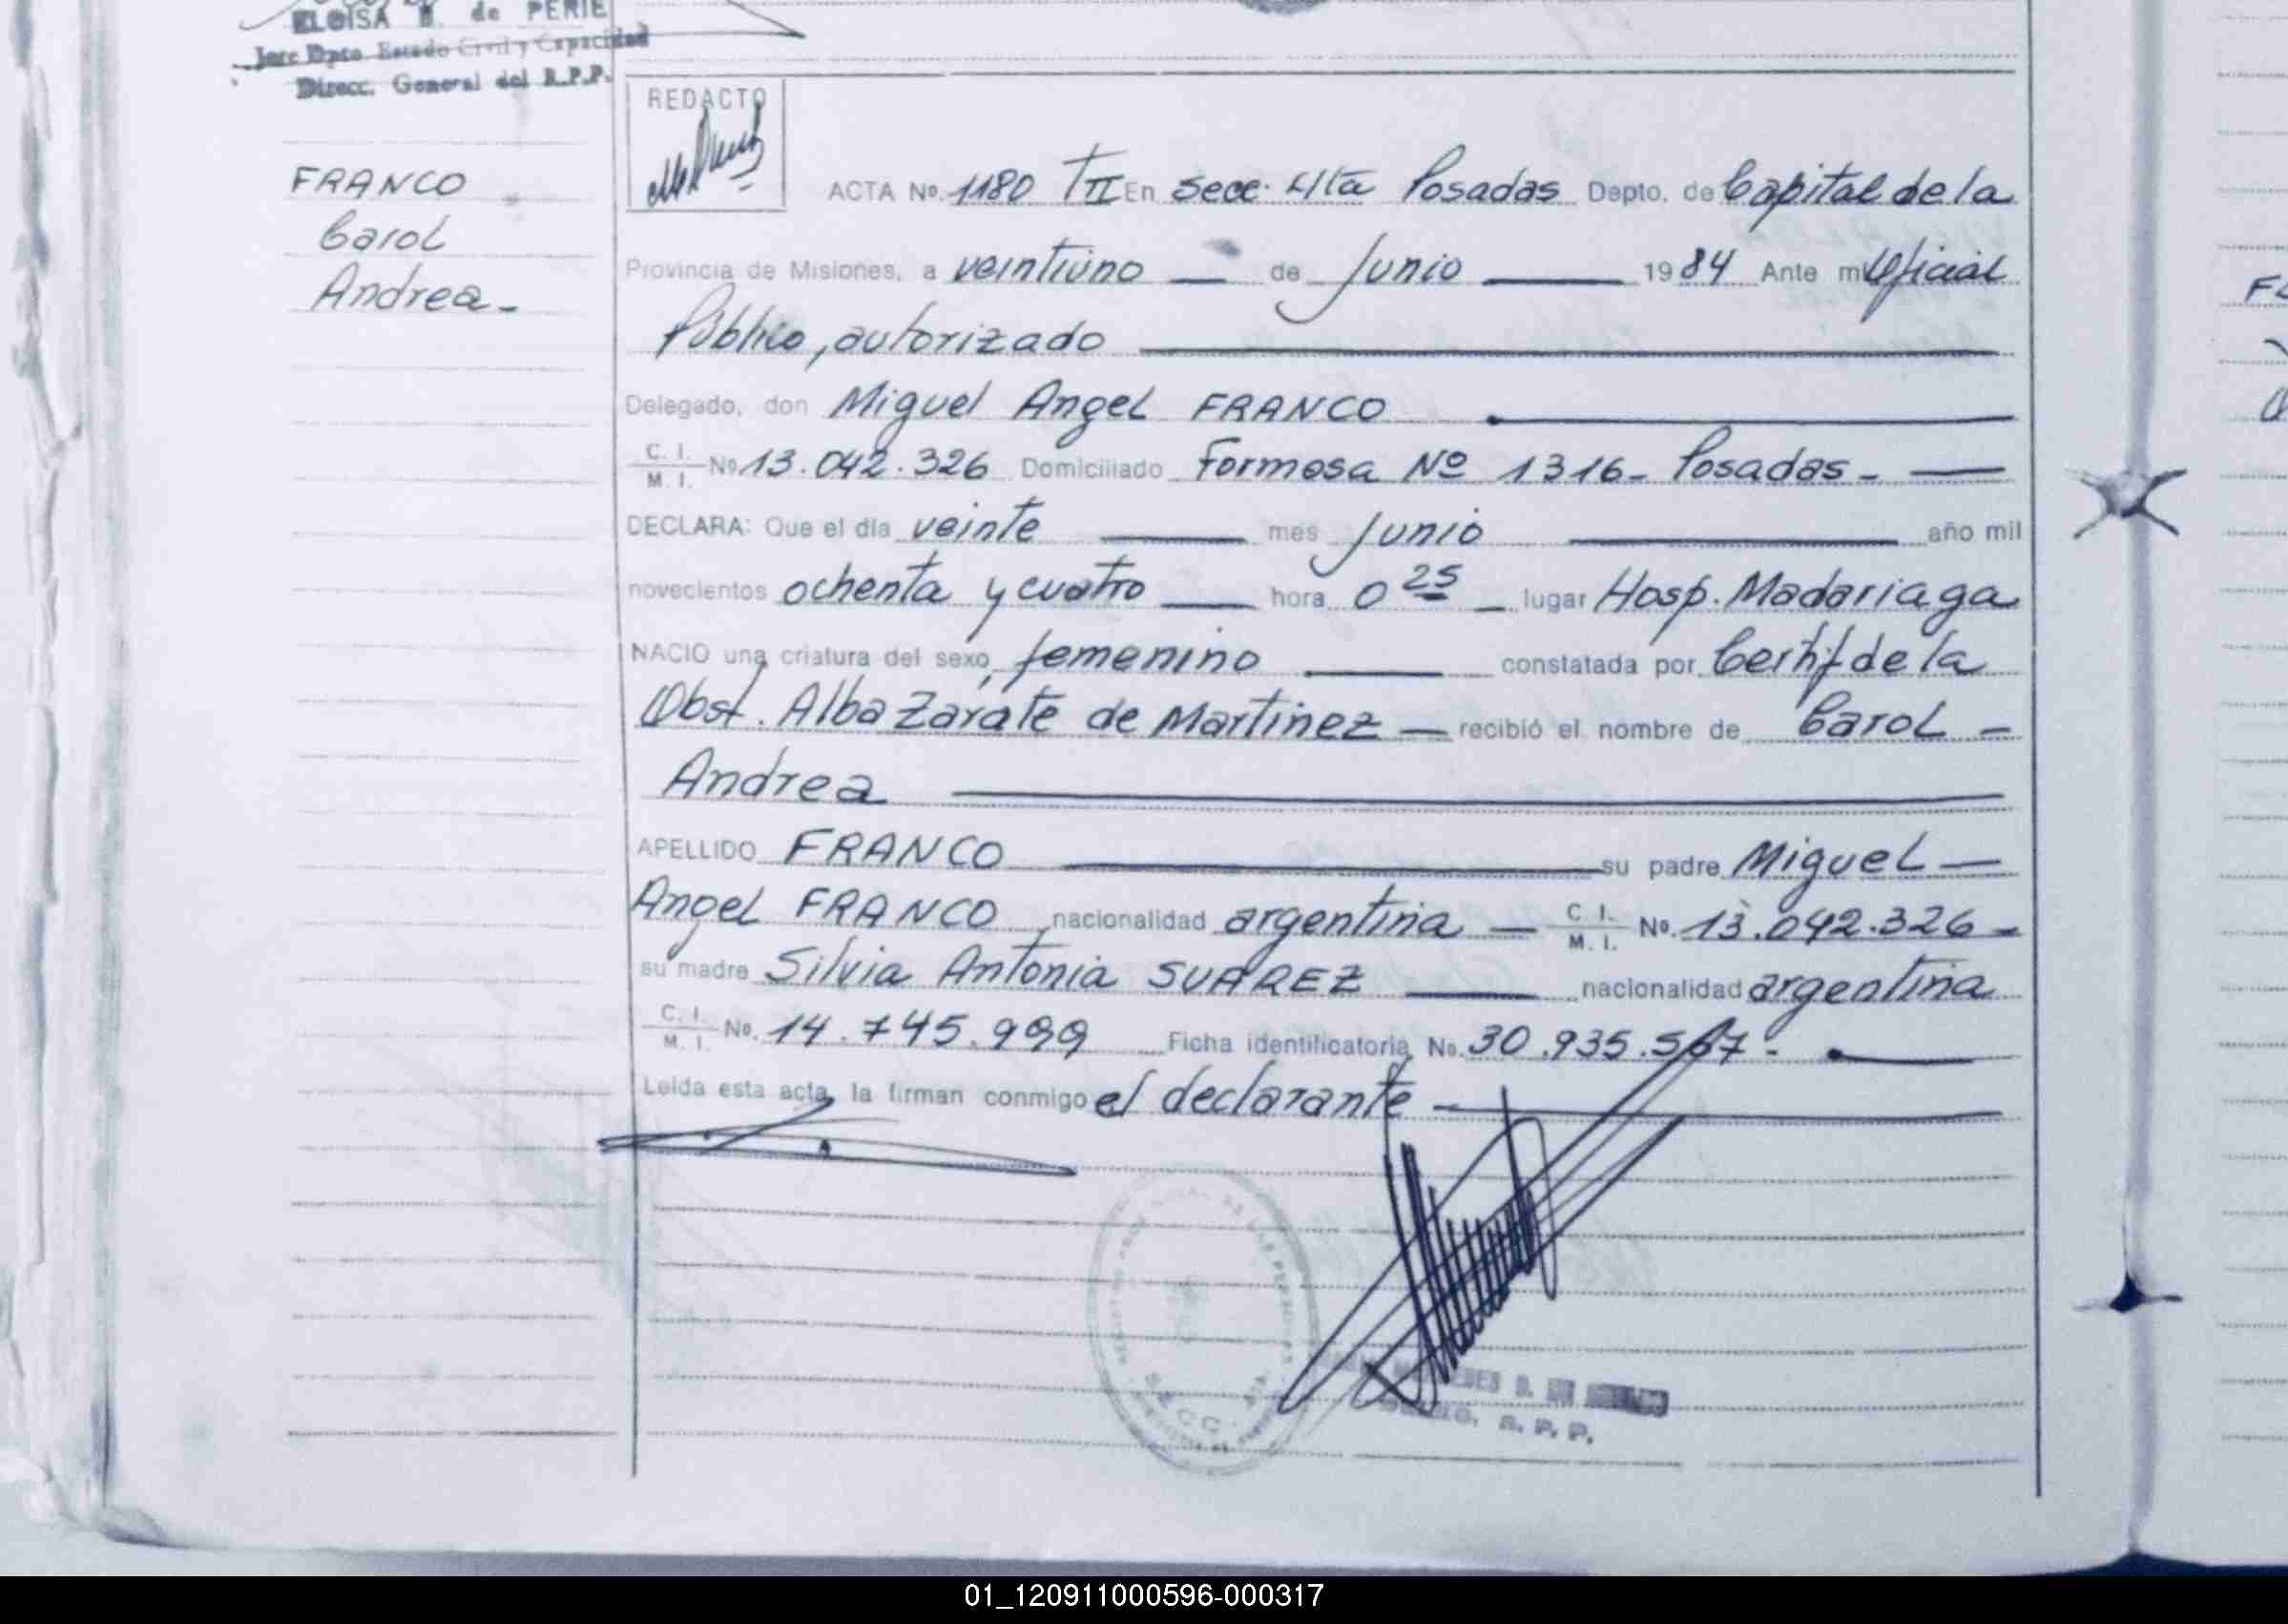 ELOISA B. de PERIE
Jefe Dpto. Estado Civil y Capacidad
Direcc. General del R.P.P.
FRANCO
Carol
Andrea-
REDACTO
ACTA No. 1180 TII En Secc. 4ta Posadas Depto. de Capital de la
Provincia de Misiones, a veintiuno de Junio 1984 Ante mi Oficial
Público, autorizado
Delegado, don Miguel Angel FRANCO
C. I. M. I. No 13.042.326 Domiciliado Formosa Nº 1316- Posadas-
DECLARA: Que el día veinte mes Junio año mil
novecientos ochenta y cuatro hora 0 25 lugar Hosp. Madariaga
NACIO una criatura del sexo, femenino constatada por Certif de la
Obst. Alba Zarate de Martinez recibió el nombre de Carol -
Andrea
APELLIDO FRANCO su padre Miguel
Angel FRANCO nacionalidad argentina C. I. M. I. No. 13.042.326-
su madre Silvia Antonia SUAREZ nacionalidad argentina
C. I. M. I. No. 14.745.999 Ficha identificatoria No. 30.935.567-
Leida esta acta, la firman conmigo el declarante
SECC. 4ta.
R. P. P.
01_120911000596-000317